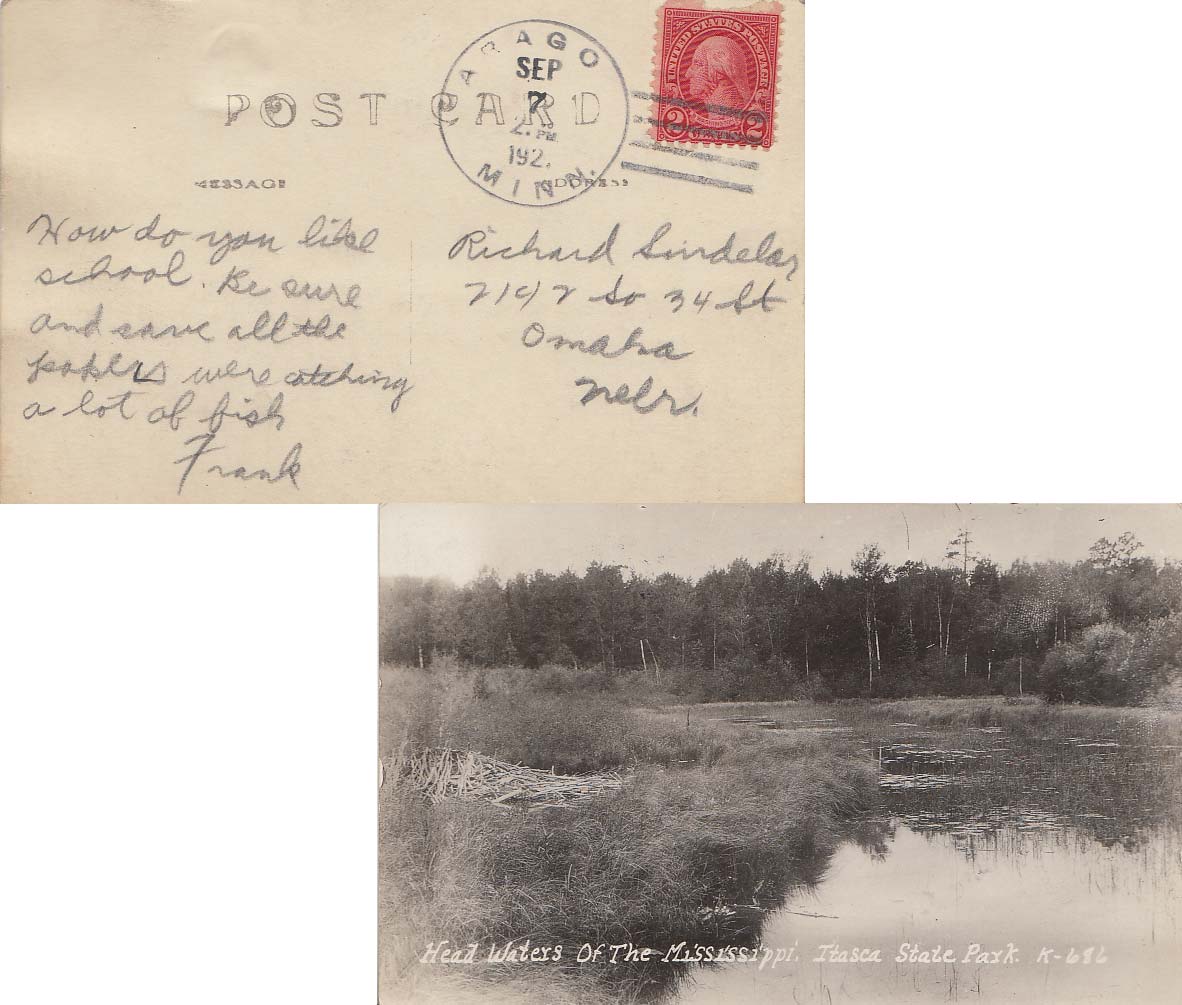 ARAGO
SEP
7
2. PM
192.
MINN.
UNITED STATES POSTAGE
2 CENTS 2
POST CARD
MESSAGE
ADDRESS
How do you like
school. Be sure
and save all the
papers were catching
a lot of fish
Frank
Richard Sindelar
So 34 St
Omaha
Nebr.
Head Waters Of The Mississippi. Itasca State Park. K-686